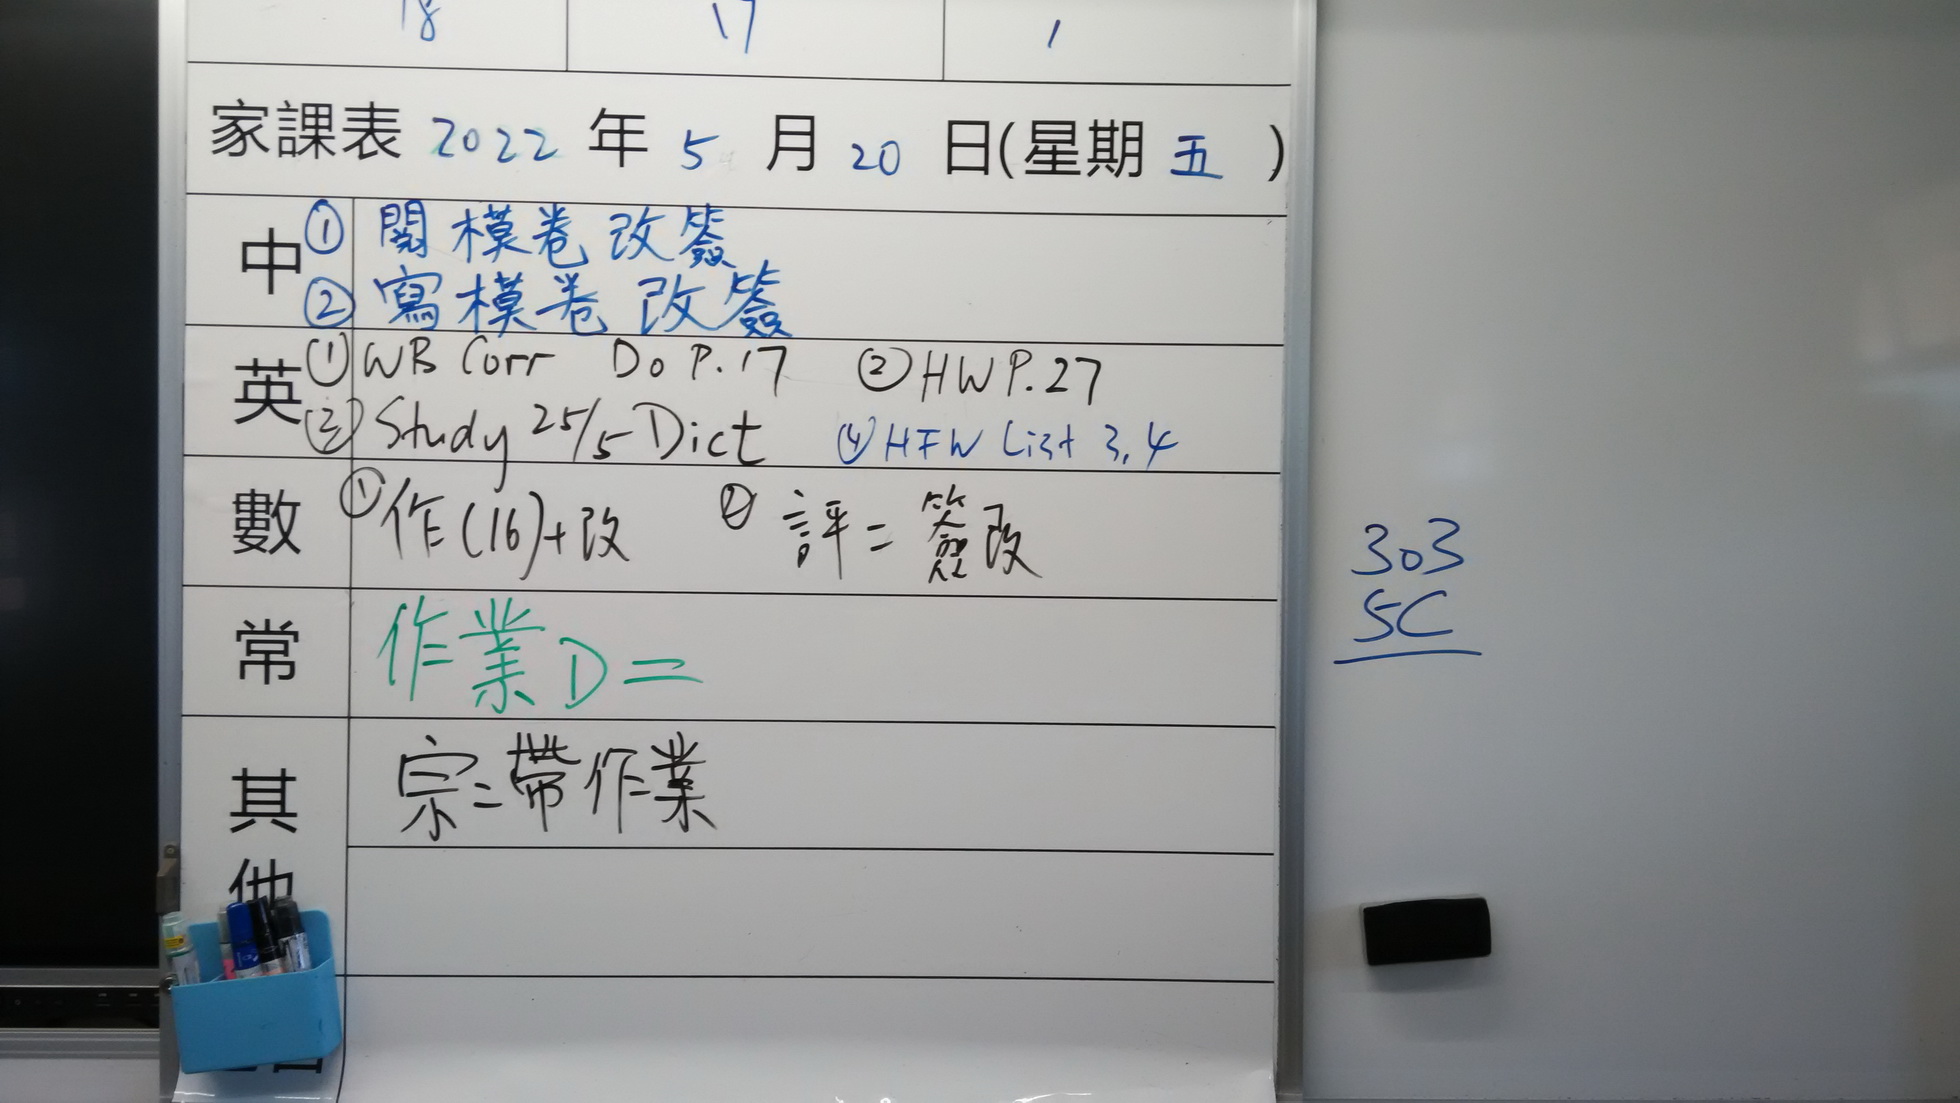 18 17 1
家課表 2022 年 5 月 20 日(星期 五 )
中 ① 閱模卷改簽
② 寫模卷改簽
英 ① WB Corr Do P.17 ② HW P.27
③ Study 25/5 Dict ④ HFW List 3,4
數 ① 作(16)+改 ② 評二簽改
常 作業D二
其他 宗二帶作業
303
5C